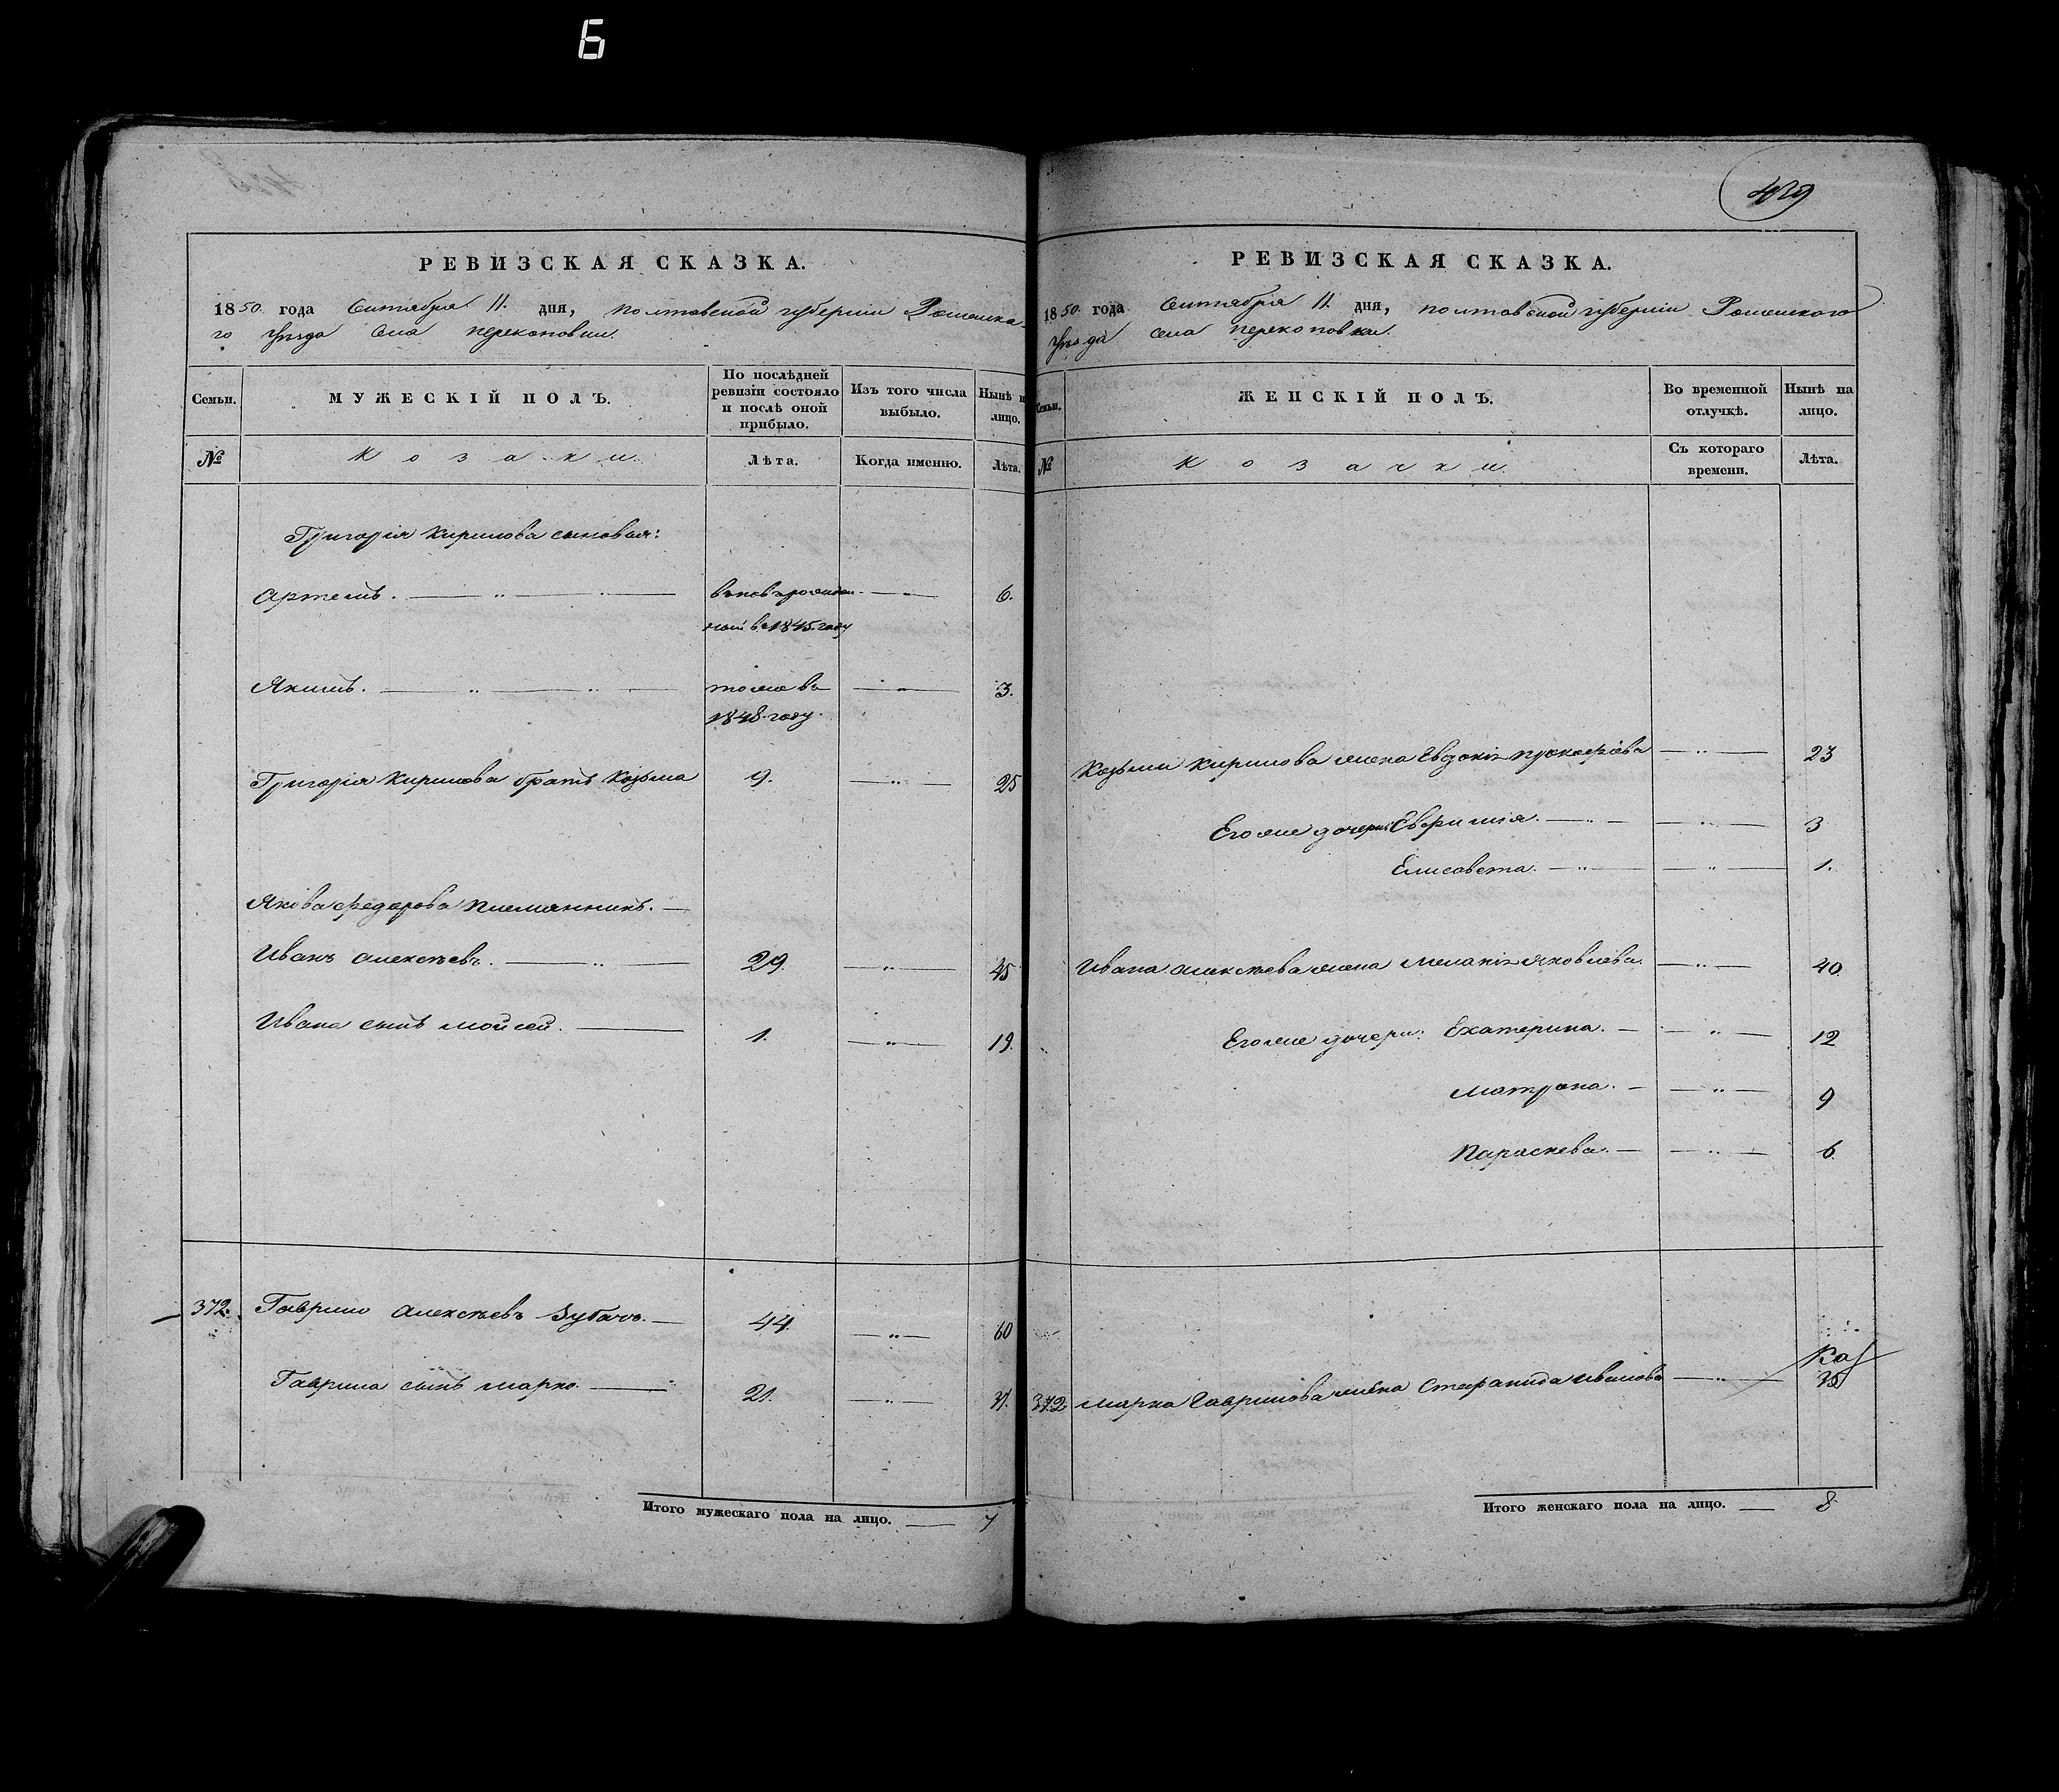 Б
РЕВИЗСКАЯ СКАЗКА.
1850. года Сентября 11. дня, Полтавской губерніи Роменска-
го уѣзда Села Перекоповки.
Семьи.
МУЖЕСКІЙ ПОЛЪ.
По послѣдней ревизіи состояло и послѣ оной прибыло.
Изъ того числа выбыло.
Нынѣ н лицо.
№
Козаки.
Лѣта.
Когда именно.
Лѣта.
Григорія Кирилова сыновья:
Артемъ. 6.
ный въ 1845 году
Якимъ. тоже въ 3.
1848 году.
Григорія Кирилова братъ Козьма 9. 25
Якова Федорова племянникъ.
Иванъ Алексѣевъ. 29. 45
Ивана сынъ Мойсей. 1. 19.
372. Гаврило Алексѣевъ Зубачъ. 44. 60
Гаврила сынъ Марко. 21.
Итого мужескаго пола на лицо. 7
429
РЕВИЗСКАЯ СКАЗКА.
1850. года Сентября 11. дня, Полтавской губерніи Роменского
уѣзда Села Перекоповки.
Семьи.
ЖЕНСКІЙ ПОЛЪ.
Во временной отлучкѣ.
Нынѣ на лицо.
№
Козачки.
Съ котораго времени.
Лѣта.
Козьмы Кирилова жена Евдокія Прокофіева 23
Его же дочери: Евфимія. 3
Елисавета. 1.
Ивана Алексѣева жена Меланія Яковлева. 40.
Его же дочери: Екатерина. 12
Матрона. 9
Параскева. 6
372 Марка Гаврилова жена Стефанида Иванова
Итого женскаго пола на лицо. 8